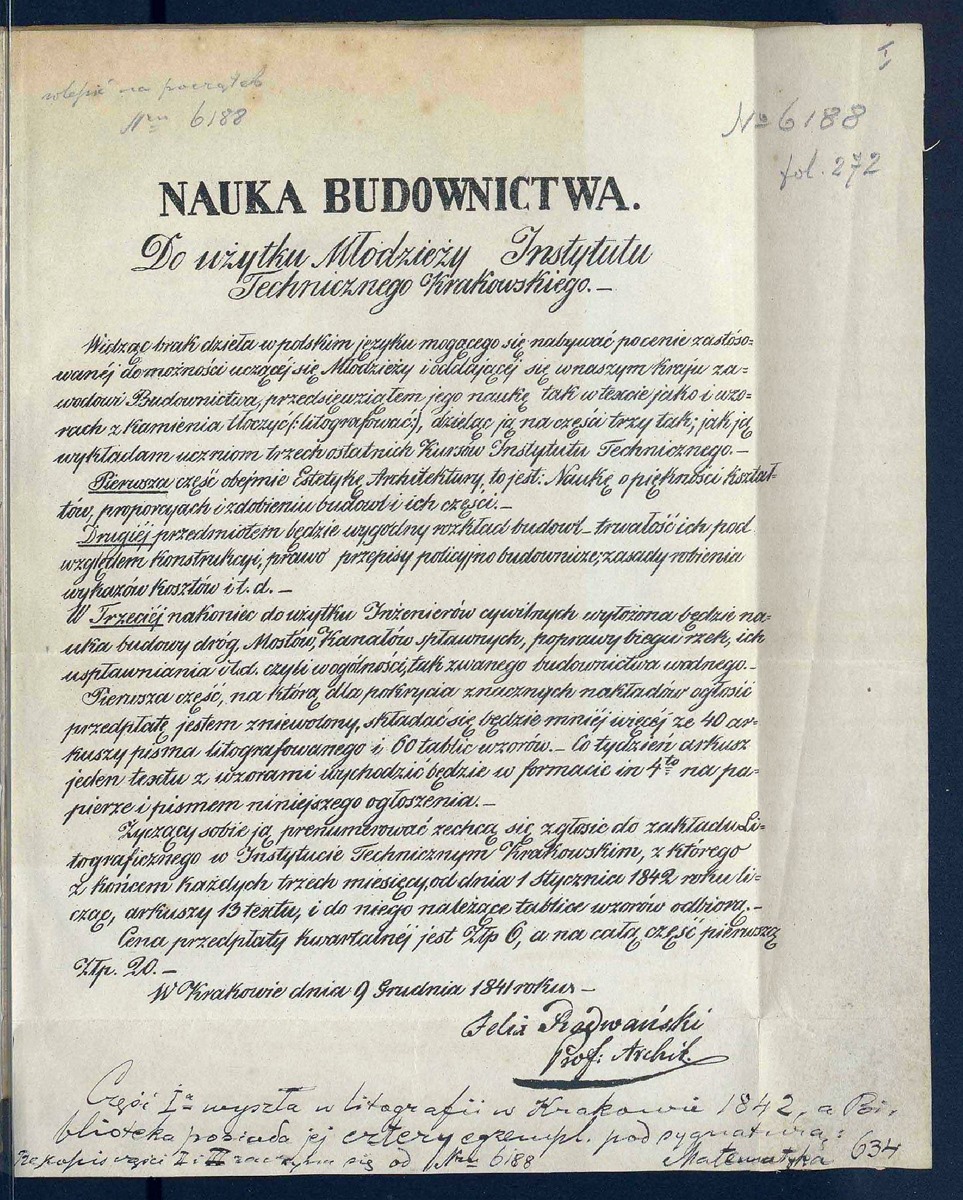 I
wlepić na początek
Nru 6188
No 6188
fol. 272
NAUKA BUDOWNICTWA.
Do użytku Młodzieży Instytutu
Technicznego Krakowskiego.—
Widząc brak dzieła w polskim języku mogącego się nabywać po cenie zastóso-
wanéj do możności uczącéj się Młodzieży i oddającéj się w naszym kraju za-
wodowi Budownictwa, przedsięwziąłem jego naukę tak w texcie jako i wzo-
rach z kamienia tłoczyć (: litografować:), dzieląc ją na części trzy tak; jak ją
wykładam uczniom trzech ostatnich Kursów Instytutu Technicznego.—
Pierwsza część obejmie Estetykę Architektury, to jest: Naukę o piękności kształ-
tów, proporcyach i zdobieniu budowl i ich części.—
Drugiéj przedmiotem będzie wygodny rozkład budowl — trwałość ich pod
względem konstrukcyi, prawo przepisy policyjno budownicze, zasady robienia
wykazów kosztów i t. d. —
W Trzeciéj nakoniec do użytku Inżenierów cywilnych wyłożona będzie na-
uka budowy dróg, Mostów, Kanałów spławnych, poprawy biegu rzek, ich
uspławniania i t.d. czyli w ogólności, tak zwanego budownictwa wodnego.—
Pierwsza część, na którą dla pokrycia znacznych nakładów ogłosić
przedpłatę jestem zniewolony, składać się będzie mniéj więcéj ze 40 ar-
kuszy pisma litografowanego i 60 tablic wzorów.— Co tydzień arkusz
jeden textu z wzorami wychodzić będzie w formacie in 4to na pa-
pierze i pismem niniejszego ogłoszenia.—
Życzący sobie ją prenumerować zechcą się zgłosić do zakładu Li-
tograficznego w Instytucie Technicznym Krakowskim, z którego
z końcem każdych trzech miesięcy, od dnia 1 Stycznia 1842 roku li-
cząc, arkuszy 13 textu, i do niego należące tablice wzorów odbiorą.—
Cena przedpłaty kwartalnéj jest Złp 6, a na całą część pierwszą
Złp. 20.—
W Krakowie dnia 9 Grudnia 1841 roku —
Felix Radwański
Prof: Archit.
Część Ia wyszła w litografii w Krakowie 1842, a Bi-
blioteka posiada jej cztery egzempl. pod sygnaturą:
Rękopis części I i II zaczyna się od Nru 6188 Matematyka 634